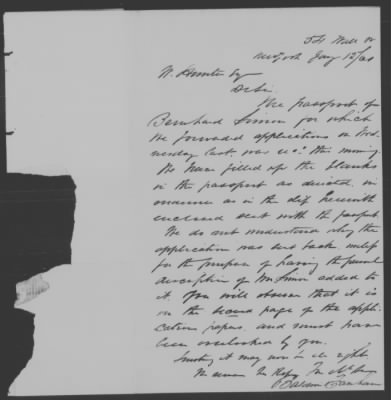 54 Wall St
New York Jany 12/
W. Hunter Esq
Dr Sir
The passport of
Bernhard Simon for which
we forwarded applications on Wed-
nesday last was rec'd this morning.
We have filled up the blanks
in the passport as directed in
manner as in the herewith
enclosed sent with the passport.
We do not understand why the
application was sent back unless
for the purpose of having the personal
description of Mr Simon added to
it. You will observe that it is
on the second page of the appli-
cation papers, and must have
been overlooked by you.
Trusting it may now be all right
We remain Very Resp